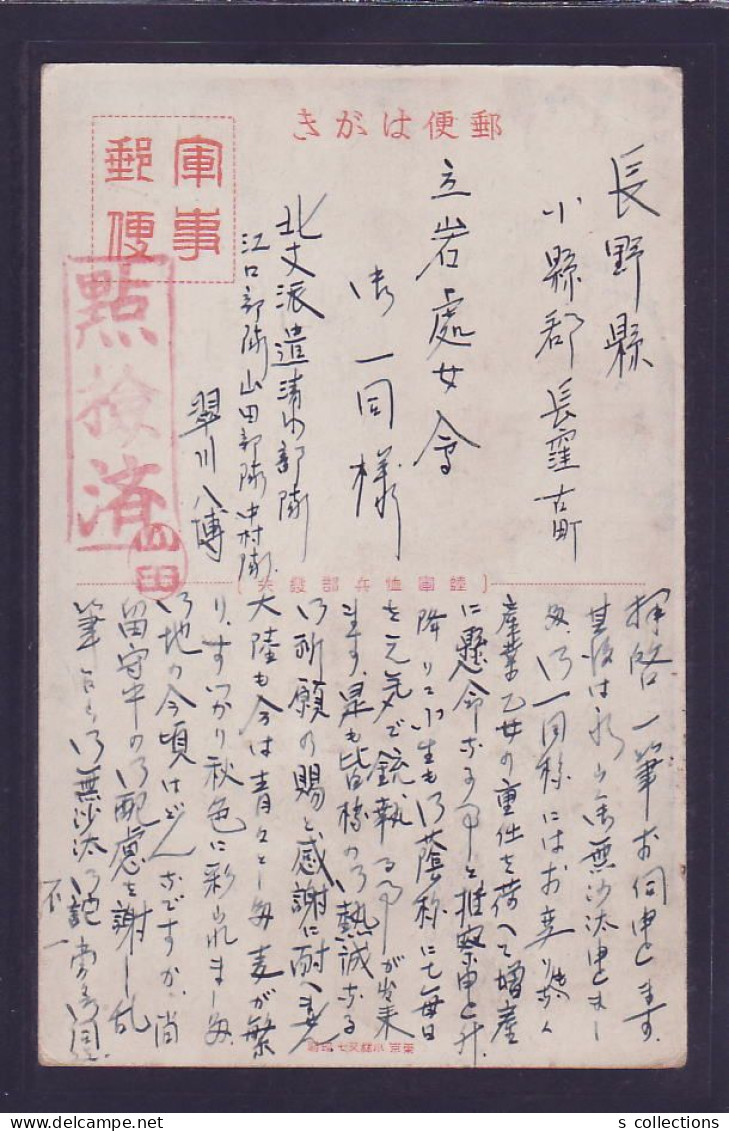 郵便はがき
軍事
郵便
點檢済
山田
長野縣
小縣郡長窪古町
立岩處女會
御一同様
北支派遣清水部隊
江口部隊山田部隊中村隊
翠川八博
陸軍恤兵部發
拝啓一筆お伺申します
其後は永らく御無沙汰申しまし
た、御一同様にはお変りなく
産業乙女の重任を荷へて増産
に懸命なる事と推察申し升
降りて小生も御蔭様にて毎日
を元気で銃執る事が出来
ます、是も皆様の御熱誠なる
御祈願の賜と感謝に耐へません
大陸も今は青々とした麦が繁
り、すっかり秋色に彩られました、
御地の今頃はどんなですか、尚
留守中の御配慮を謝し乱
筆にて御無沙汰御詫旁々御伺
不一
s collections